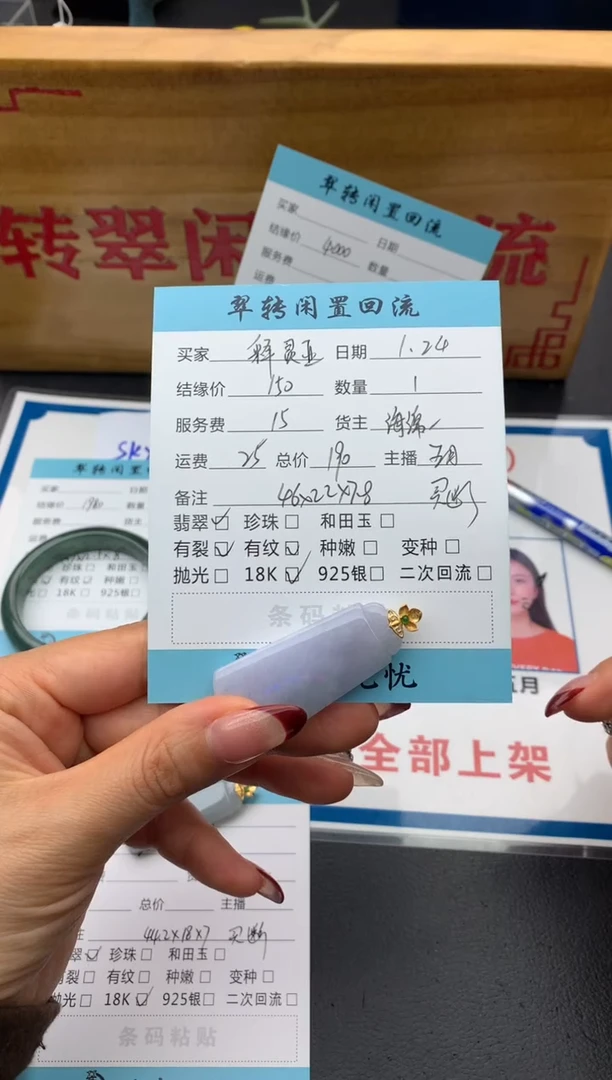 翠转闲置回流
买家 日期
结缘价 4000 数量
服务费
运费
转翠闲 流
翠转闲置回流
买家 日期 1.24
结缘价 150 数量 1
服务费 15 货主
运费 25 总价 190 主播 五月
备注 46x22x7.8 买断
翡翠☑ 珍珠☐ 和田玉☐
有裂☑ 有纹☑ 种嫩☐ 变种☐
抛光☐ 18K☑ 925银☐ 二次回流☐
条码粘贴
忧
五月
全部上架
总价 主播
44.2x18x7 买断
翠☑ 珍珠☐ 和田玉☐
裂☐ 有纹☐ 种嫩☐ 变种☐
抛光☐ 18K☑ 925银☐ 二次回流☐
条码粘贴